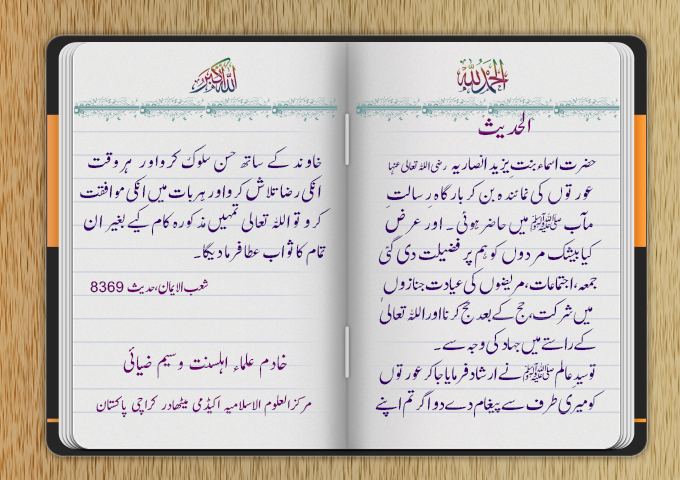 الحمدللہ
الحدیث
حضرت اسماء بنت یزید انصاریہ رضی اللہ تعالیٰ عنہا
عورتوں کی نمائندہ بن کر بارگاہ رسالت
مآب ﷺ میں حاضر ہوئی۔ اور عرض
کیا بیشک مردوں کو ہم پر فضیلت دی گئی
جمعہ، اجتماعات، مریضوں کی عیادت جنازوں
میں شرکت، حج کے بعد حج کرنا اور اللہ تعالیٰ
کے راستے میں جہاد کی وجہ سے۔
تو سید عالم ﷺ نے ارشاد فرمایا جاکر عورتوں
کو میری طرف سے پیغام دے دو اگر تم اپنے
اللہ اکبر
خاوند کے ساتھ حسن سلوک کرو اور ہر وقت
انکی رضا تلاش کرو اور ہر بات میں انکی موافقت
کرو تو اللہ تعالی تمہیں مذکورہ کام کیے بغیر ان
تمام کا ثواب عطا فرما دیگا۔
شعب الایمان، حدیث 8369
خادم علماء اہلسنت وسیم ضیائی
مرکز العلوم الاسلامیہ اکیڈمی میٹھادر کراچی پاکستان